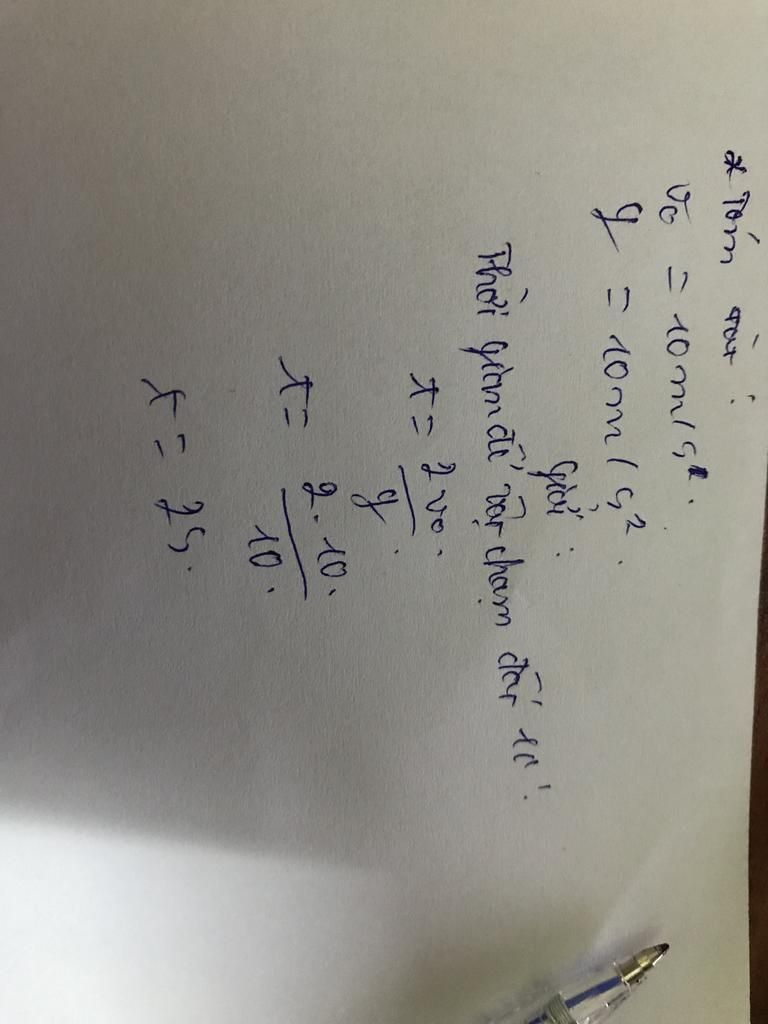 * Tóm tắt :
v₀ = 10m/s².
g = 10m/s².
giải :
Thời gian để vật chạm đất là :
t = 2v₀. / g.
t = 2.10. / 10.
t = 2s.